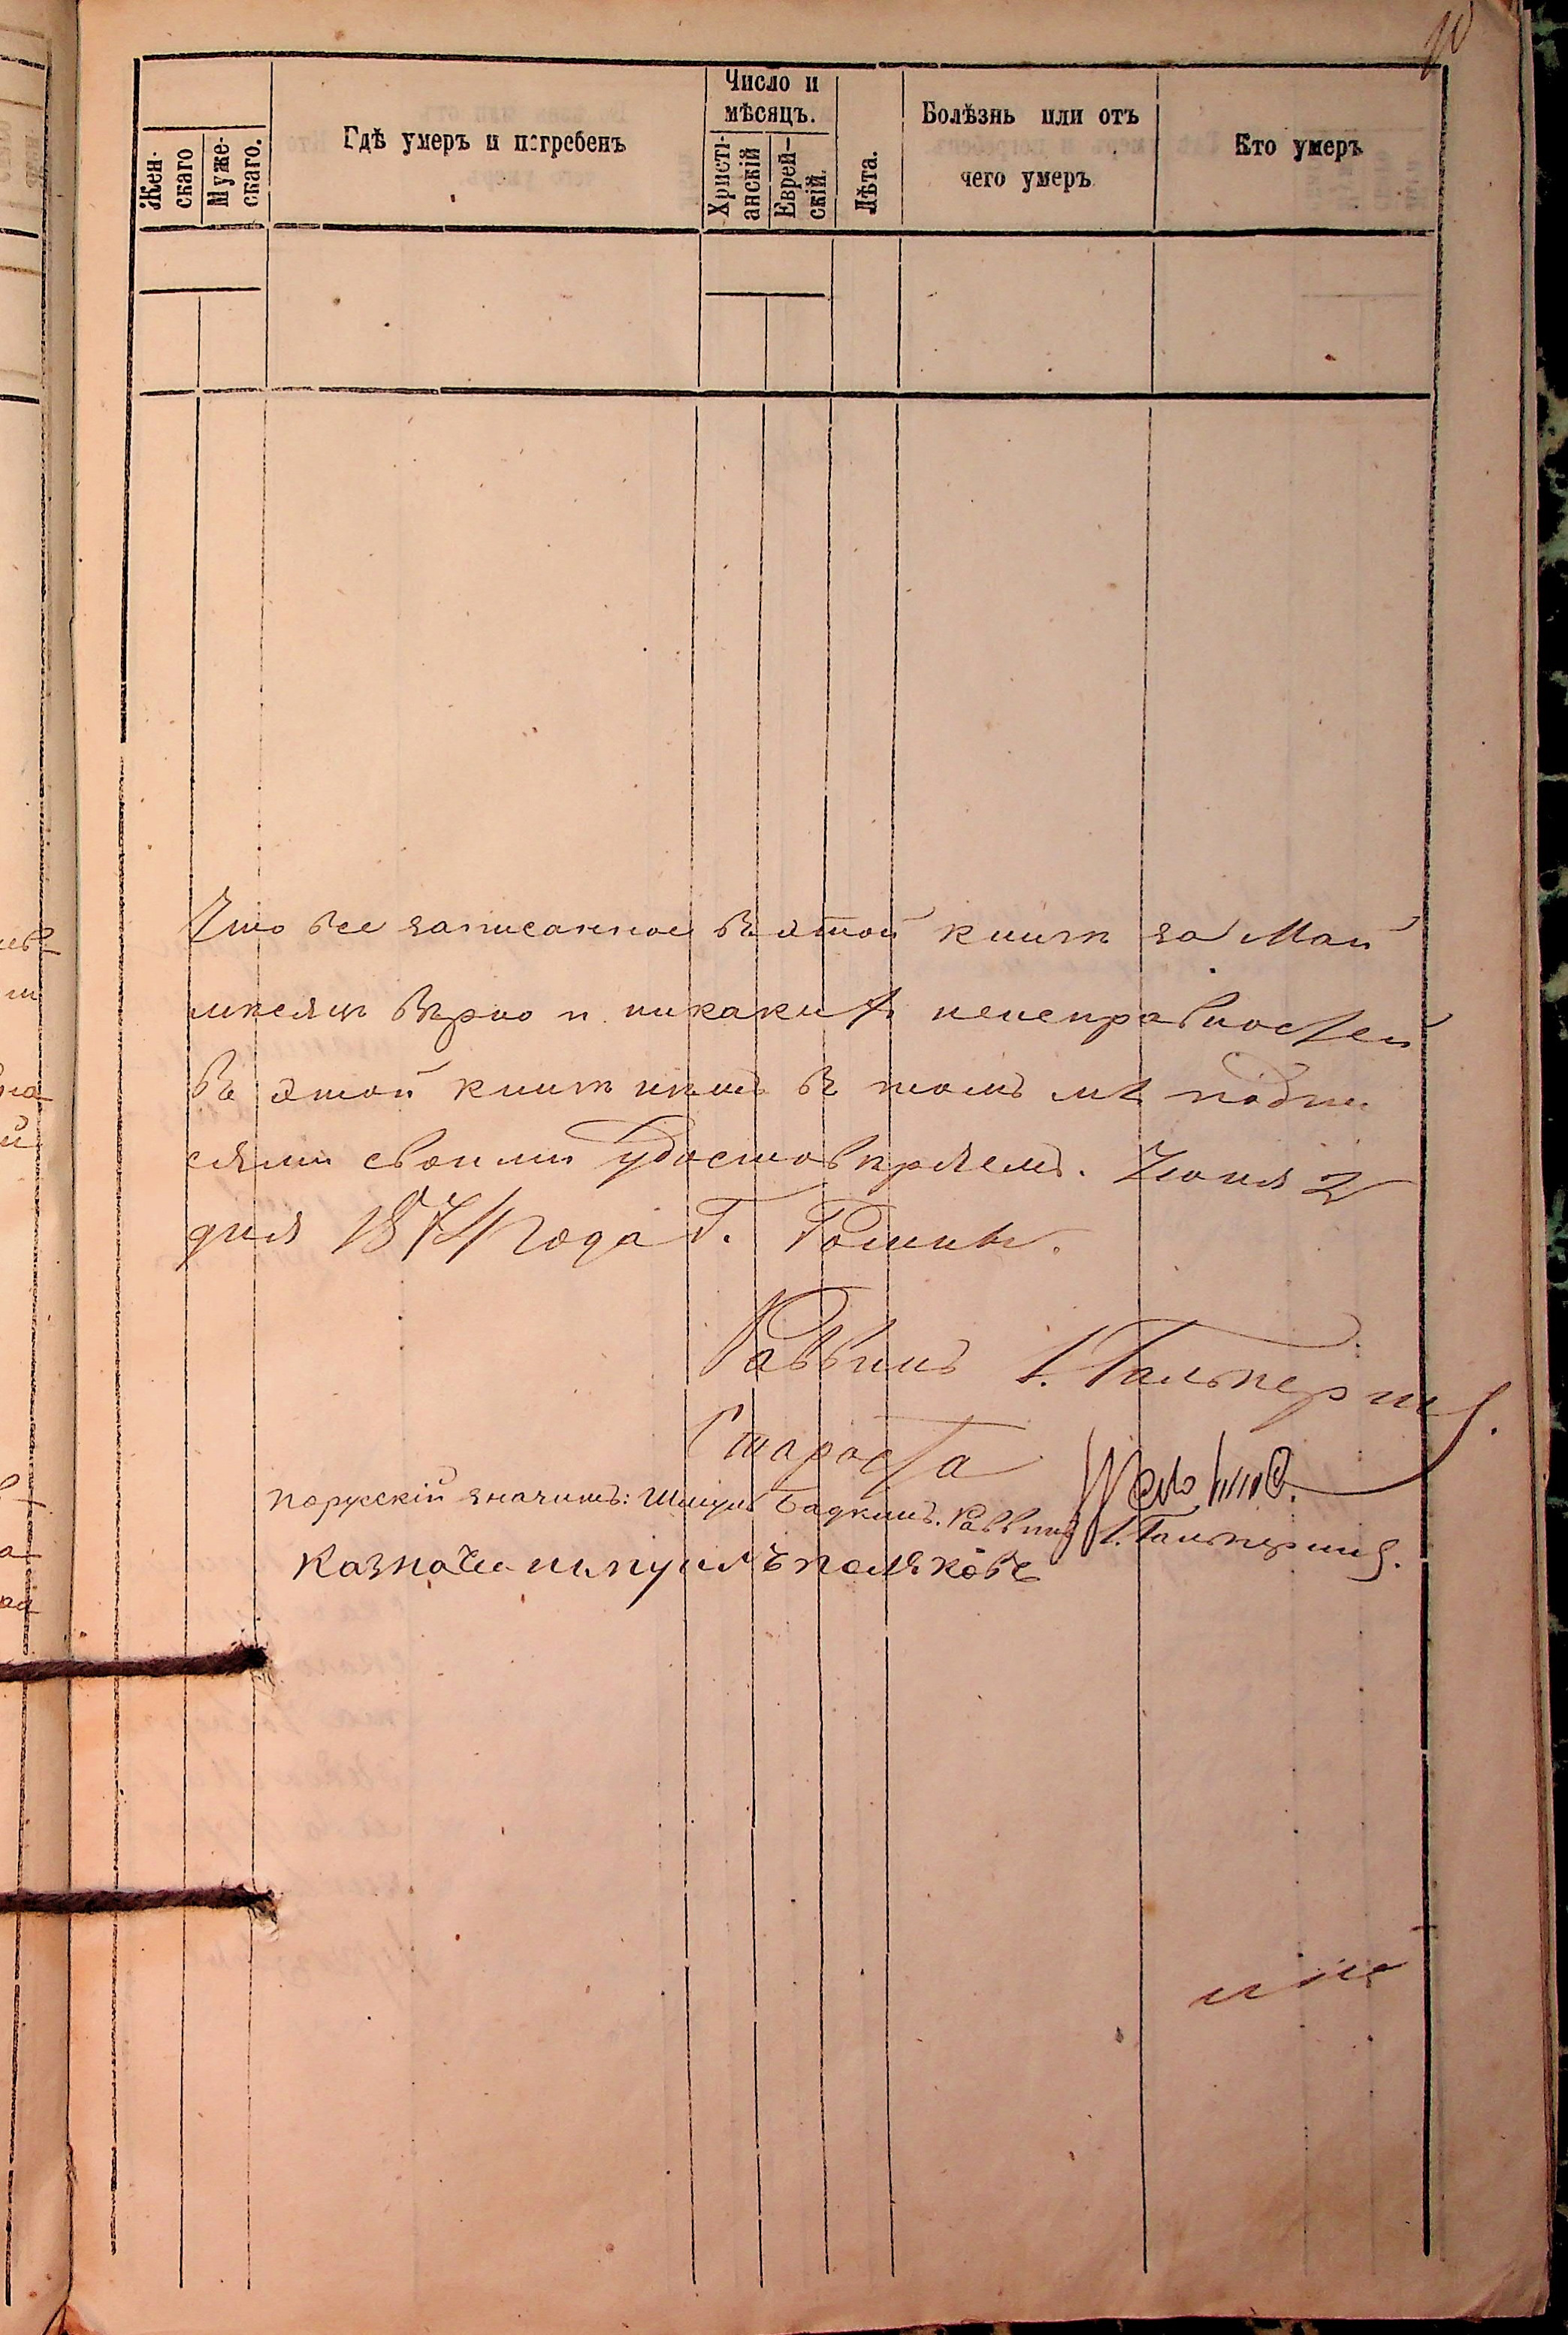 10
Жен-
скаго
Муже-
скаго.
Гдѣ умеръ и погребенъ
Число и
мѣсяцъ.
Христі-
анскій
Еврей-
скій.
Лѣта.
Болѣзнь или отъ
чего умеръ
Кто умеръ
Что все записанное въ этой книгѣ за Май
мѣсяцъ вѣрно и никакихъ неисправностей
въ этой книгѣ нѣтъ въ томъ мы подпи
сями своими удостовѣряемъ. Іюня 2
дня 1874 года Г. Ромны.
Раввинъ І. Гальперинъ.
Староста
порускій значитъ: Шмуль Бадкинъ. Раввинъ І. Гальперинъ.
Казначеи шмуилъ поляковъ